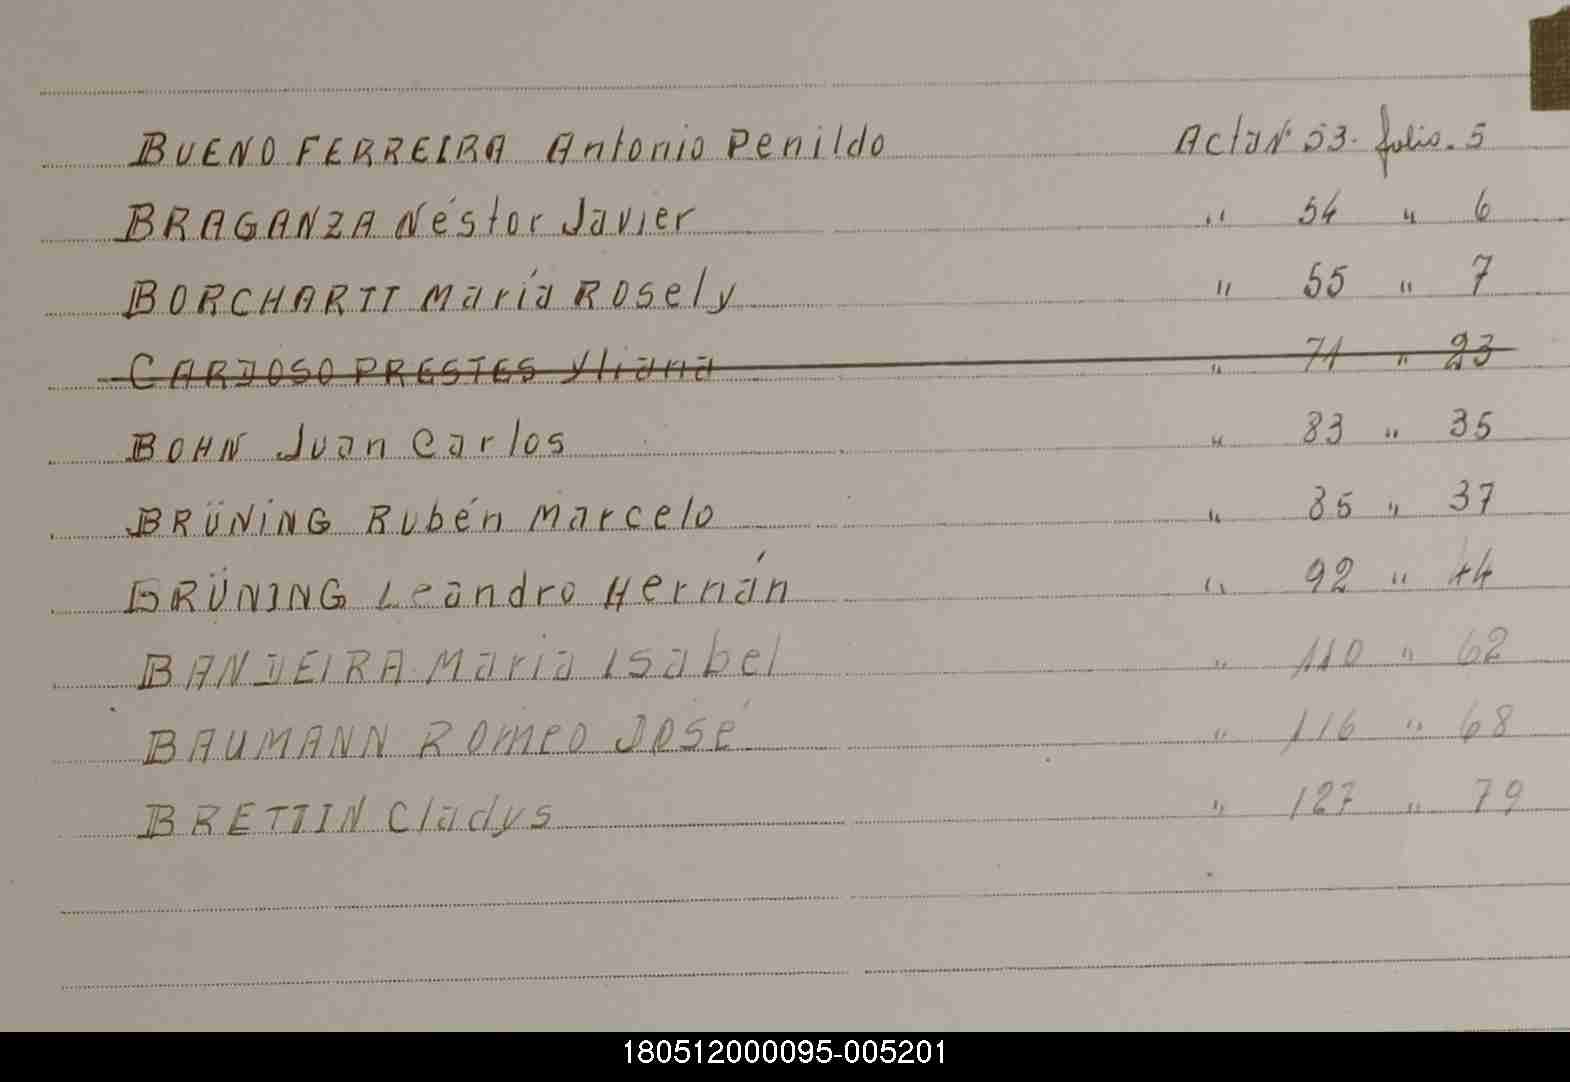 BUENO FERREIRA Antonio Penildo Acta Nº 53. folio. 5
BRAGANZA Néstor Javier " 54 " 6
BORCHARTT María Rosely " 55 " 7
CARDOSO PRESTES Yliana " 71 " 23
BOHN Juan Carlos " 83 " 35
BRÜNING Rubén Marcelo " 85 " 37
BRÜNING Leandro Hernán " 92 " 44
BANDEIRA María Isabel " 110 " 62
BAUMANN Romeo José " 116 " 68
BRETTIN Cladys " 127 " 79
180512000095-005201